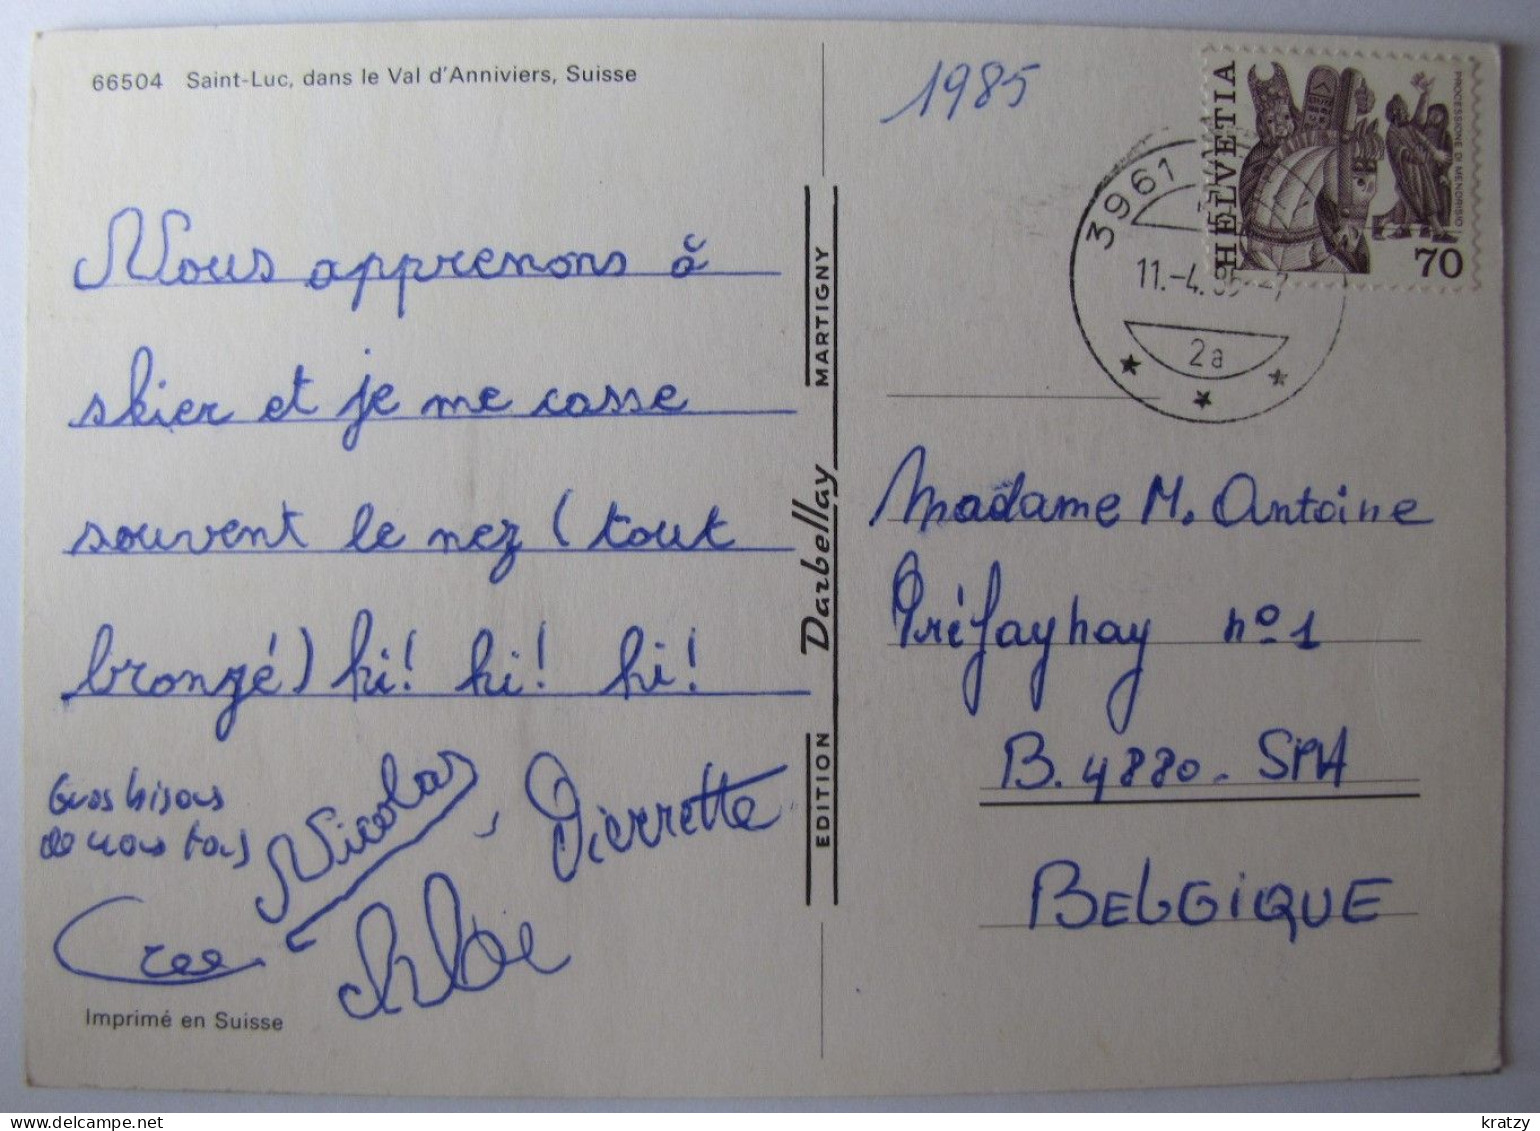 66504 Saint-Luc, dans le Val d'Anniviers, Suisse
Nous apprenons à
skier et je me casse
souvent le nez (tout
bronzé) hi! hi! hi!
Gros bisous
de nous tous
Nicolas, Pierrette
Chloé
Imprimé en Suisse
EDITION Darbellay MARTIGNY
1985
3961
11.-4. 85-7
2a
HELVETIA
PROCESSIONE DI MENDRISIO
70
Madame M. Antoine
Préfayhay n° 1
B. 4880 - SPA
BELGIQUE
kratzy